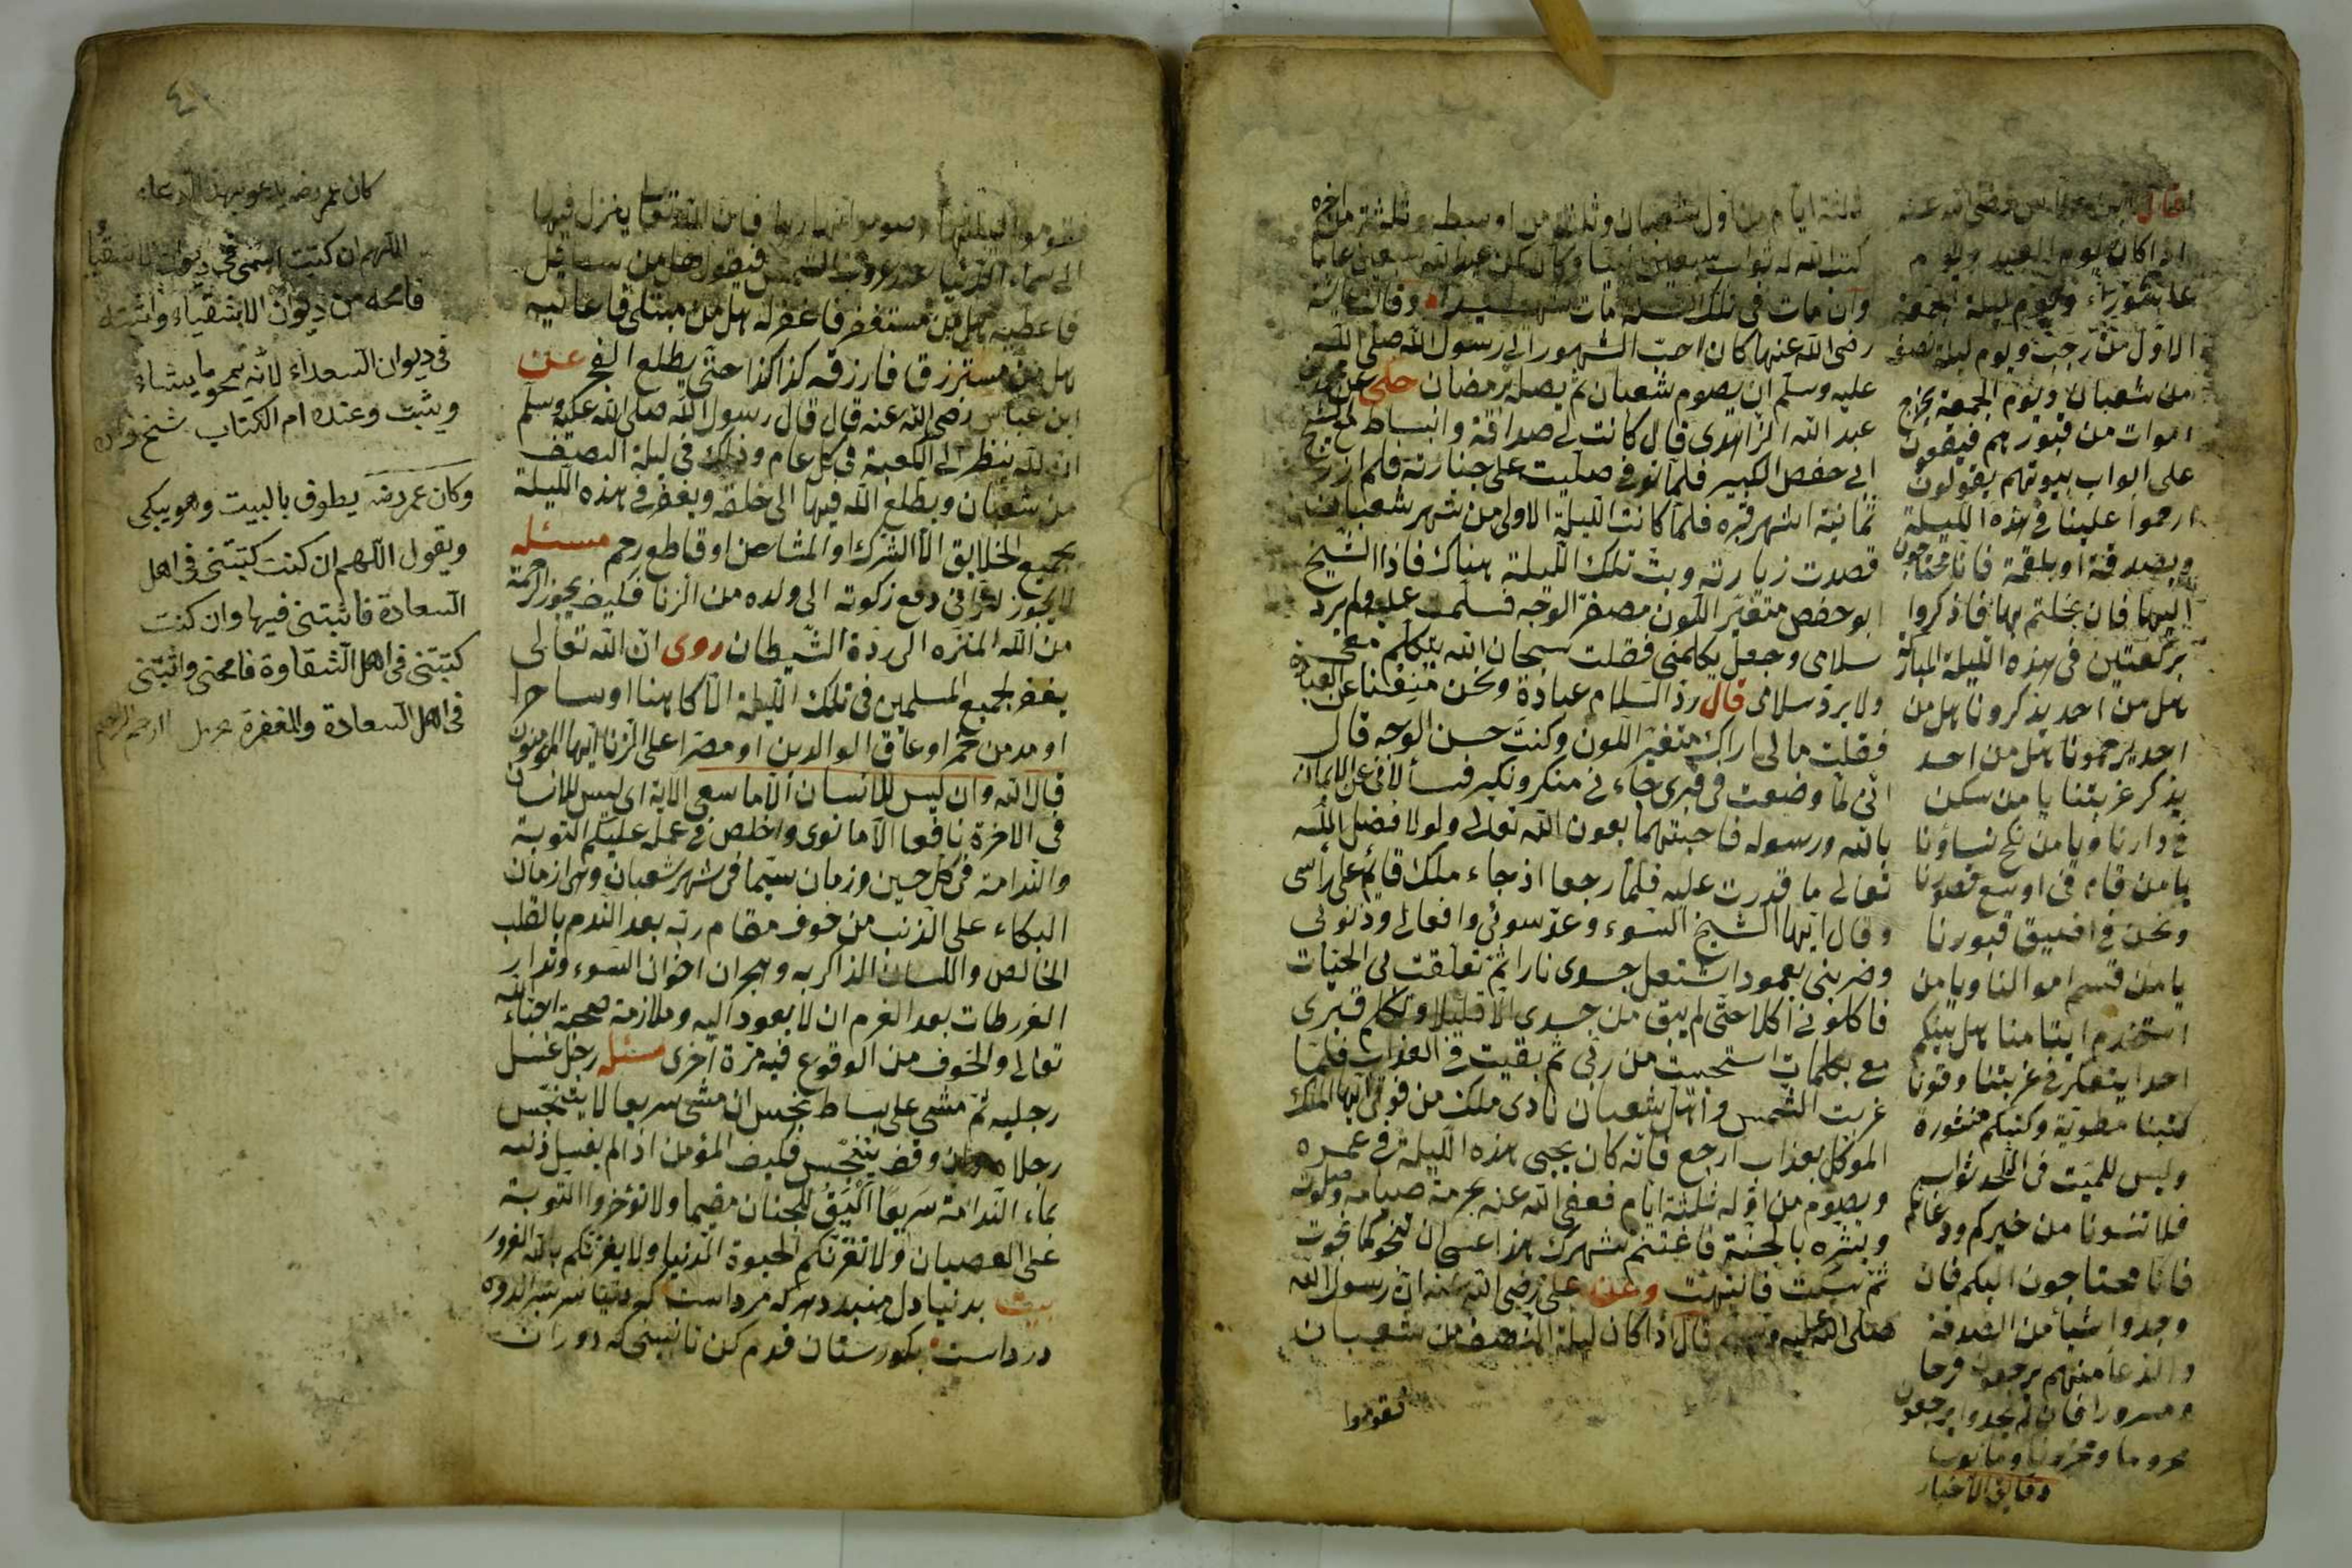 ثلثة ايام من اول شعبان وثلثة من اوسطه وثلثة من آخره
كتب الله له ثواب سبعين نبيا وكان كمن عبد الله سبعين عاما
وان مات في تلك السنة مات شهيدا وقالت عايشة
رضى الله عنها كان احبّ الشهور الى رسول الله صلى الله
عليه وسلم ان يصوم شعبان ثم يصله برمضان حكى عن محمد بن
عبد الله الزاهدى قال كانت لى صداقة وانبساط مع الشيخ
ابى حفص الكبير فلما توفى صليت على جنازته فلم ازر
ثمانية اشهر قبره فلما كانت الليلة الاولى من شهر شعبان
قصدت زيارته وبتّ تلك الليلة هناك فاذا الشيخ
ابو حفص متغيّر اللون مصفرّ الوجه فسلمت عليه ولم يردّ
سلامى وجعل يكلمنى فقلت سبحان الله يتكلم معى
ولا يردّ سلامى قال ردّ السلام عبادة ونحن منعنا عن العبادة
فقلت مالى اراك متغيّر اللون وكنت حسن الوجه قال
انى لمّا وضعت فى قبرى جاءنى منكر ونكير فسألانى عن الايمان
بالله ورسوله فاجبتهما بعون الله تعالى ولولا فضل الله
تعالى ما قدرت عليه فلمّا رجعا اذ جاء ملك قائم على رأسى
وقال ايّها الشيخ السّوء وعدّ سوئى وافعالى وذنوبى
وضربنى بعمود اشتعل جسدى نارا ثمّ تعلقت بى الحيّات
فاكلونى اكلا حتّى لم يبق من جسدى الا قليلا وتكلم قبرى
مع بكلمات استحييت من ربّى ثم بقيت فى العذاب فلمّا
غربت الشمس واهلّ شعبان نادى ملك من فوقى ايّها الملك
الموكل بعذاب ارجع فانّه كان يحيى هذه الليلة فى عمره
ويصوم من اوّله ثلثة ايّام فعفى الله عنه بحرمة صيامه وصلوته
وبشّره بالجنّة فاغتنم شهرك هذا عسى ان تنجو كما نجوت
ثمّ سكت فانتبهت وعن على رضى الله عنه انّ رسول الله
صلى الله عليه وسلم قال اذا كان ليلة النصف من شعبان
فقوموا
قال ابن عباس رضى الله عنه
اذا كان يوم العيد ويوم
عاشوراء ويوم ليلة الجمعة
الاوّل من رجب ويوم ليلة نصف
من شعبان ويوم الجمعة يخرج
اموات من قبورهم فيقفون
على ابواب بيوتهم يقولون
ارحموا علينا فى هذه الليلة
وبصدقة او بلقمة فانا محتاجون
اليها فان بخلتم بها فاذكروا
بركعتين فى هذه الليلة المباركة
هل من احد يذكرونا هل من
احد يرحمونا هل من احد
يذكر غربتنا يا من سكن
فى دارنا ويا من نكح نساؤنا
يا من قام فى اوسع قصورنا
ونحن فى اضيق قبورنا
يا من قسم اموالنا ويا من
استخدم ايتامنا هل بينكم
احدا يتفكر فى غربتنا وقوتا
كتبنا مطويّة وكتبكم منشورة
وليس للميّت فى اللحد ثواب
فلا تنسونا من خيركم ودعائكم
فانا محتاجون اليكم فان
وجدوا شيأ من الصدقة
والدعا منهم يرجعون فرحا
ومسرورا فان لم يجدوا يرجعون
محروما ومحزونا
دقايق الاخبار
فقوموا ليلتها وصوموا نهارها فانّ الله تعالى ينزل فيها
الى سماء الدنيا عند غروب الشمس فيقول هل من سائل
فاعطيه هل من مستغفر فاغفر له هل من مبتلى فاعافيه
هل من مسترزق فارزقه كذا كذا حتّى يطلع الفجر عن
ابن عباس رضى الله عنه قال قال رسول الله صلى الله عليه وسلم
ان الله ينظر الى الكعبة فى كل عام وذلك فى ليلة النصف
من شعبان ويطلع الله فيها الى خلقه ويغفر فى هذه الليلة
بجميع الخلايق الاّ المشرك او المشاحن او قاطع رحم مسئله
لا يجوز للزانى دفع زكوته الى ولده من الزنا فكيف يجوز الرحمة
من الله المنزه الى ردة الشّيطان روى انّ الله تعالى
يغفر لجميع المسلمين فى تلك الليلة الاّ كاهنا او ساحرا
او مدمن خمر او عاق الوالدين او مصرا على الزنا ايها المؤمنون
قال الله وان ليس للانسان الاّ ما سعى الاية اى ليس للانسان
فى الاخرة نافعا الاّ ما نوى واخلص فى عمله عليكم التوبة
والندامة فى كل حين وزمان سيّما فى شهر شعبان ونهر ازمان
البكاء على الذنب من خوف مقام ربّه بعد الندم بالقلب
الخالص واللسان الذاكر به وهجران اخوان السوء وتدارك
الفرطات بعد العزم ان لا يعود اليه وملازمة صحبة احبّاء الله
تعالى والخوف من الوقوع فيه مرّة اخرى مسئله رجل غسل
رجليه ثمّ مشى على بساط نجس ان مشى سريعا لا يتنجّس
رجلاه وان وقف يتنجّس فكيف المؤمن اذا لم يغسل ذنبه
بماء الندامة سريعا اليَقُ للجنان مقيما ولا تؤخروا التوبة
على العصيان ولا تغرّنكم الحيوة الدنيا ولا يغرّنكم بالله الغرور
بيت بدنيا دل نبندد هركه مرداست كه دنيا سر بسر اندوه
درداست بكورستان قدم كن تا ببينى كه دوران
كان عمر رضه يدعو بهذا الدعاء
اللهم ان كتبت اسمى فى ديوان الاشقياء
فامحه من ديوان الاشقياء واثبته
فى ديوان السعداء لانّه يمحو ما يشاء
ويثبت وعنده ام الكتاب
وكان عمر رضه يطوف بالبيت وهو يبكى
ويقول اللهم ان كنت كتبتنى فى اهل
السعادة فاثبتنى فيها وان كنت
كتبتنى فى اهل الشقاوة فامحنى واثبتنى
فى اهل السعادة والمغفرة